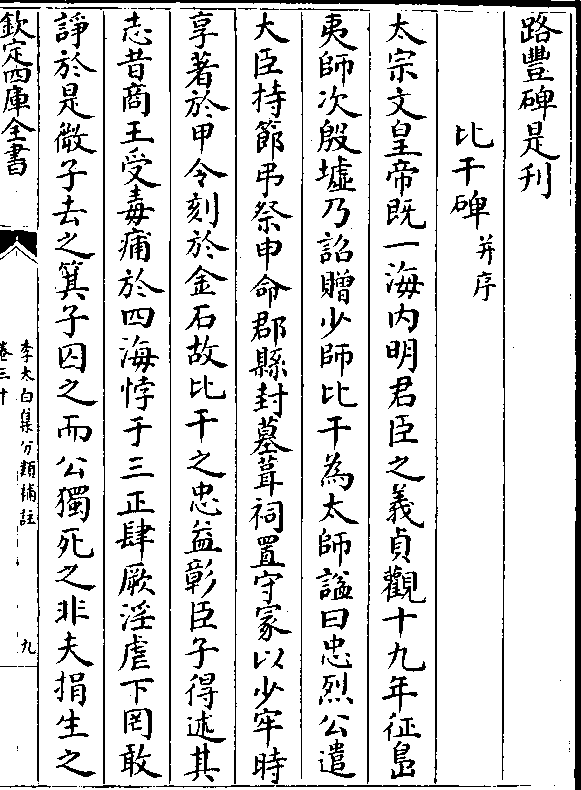 路豐碑是刋
比干碑并序
太宗文皇帝既一海内明君臣之義貞觀十九年征島
夷師次殷墟乃詔贈少師比干為太師諡曰忠烈公遣
大臣持節弔祭申命郡縣封墓葺祠置守冢以少牢時
享著於甲令刻於金石故比干之忠益彰臣子得述其
志昔商王受毒痡於四海悖于三正肆厥淫虐下罔敢
諍於是微子去之箕子囚之而公獨死之非夫捐生之
欽定四庫全書
李太白集分類補註
卷三十
九